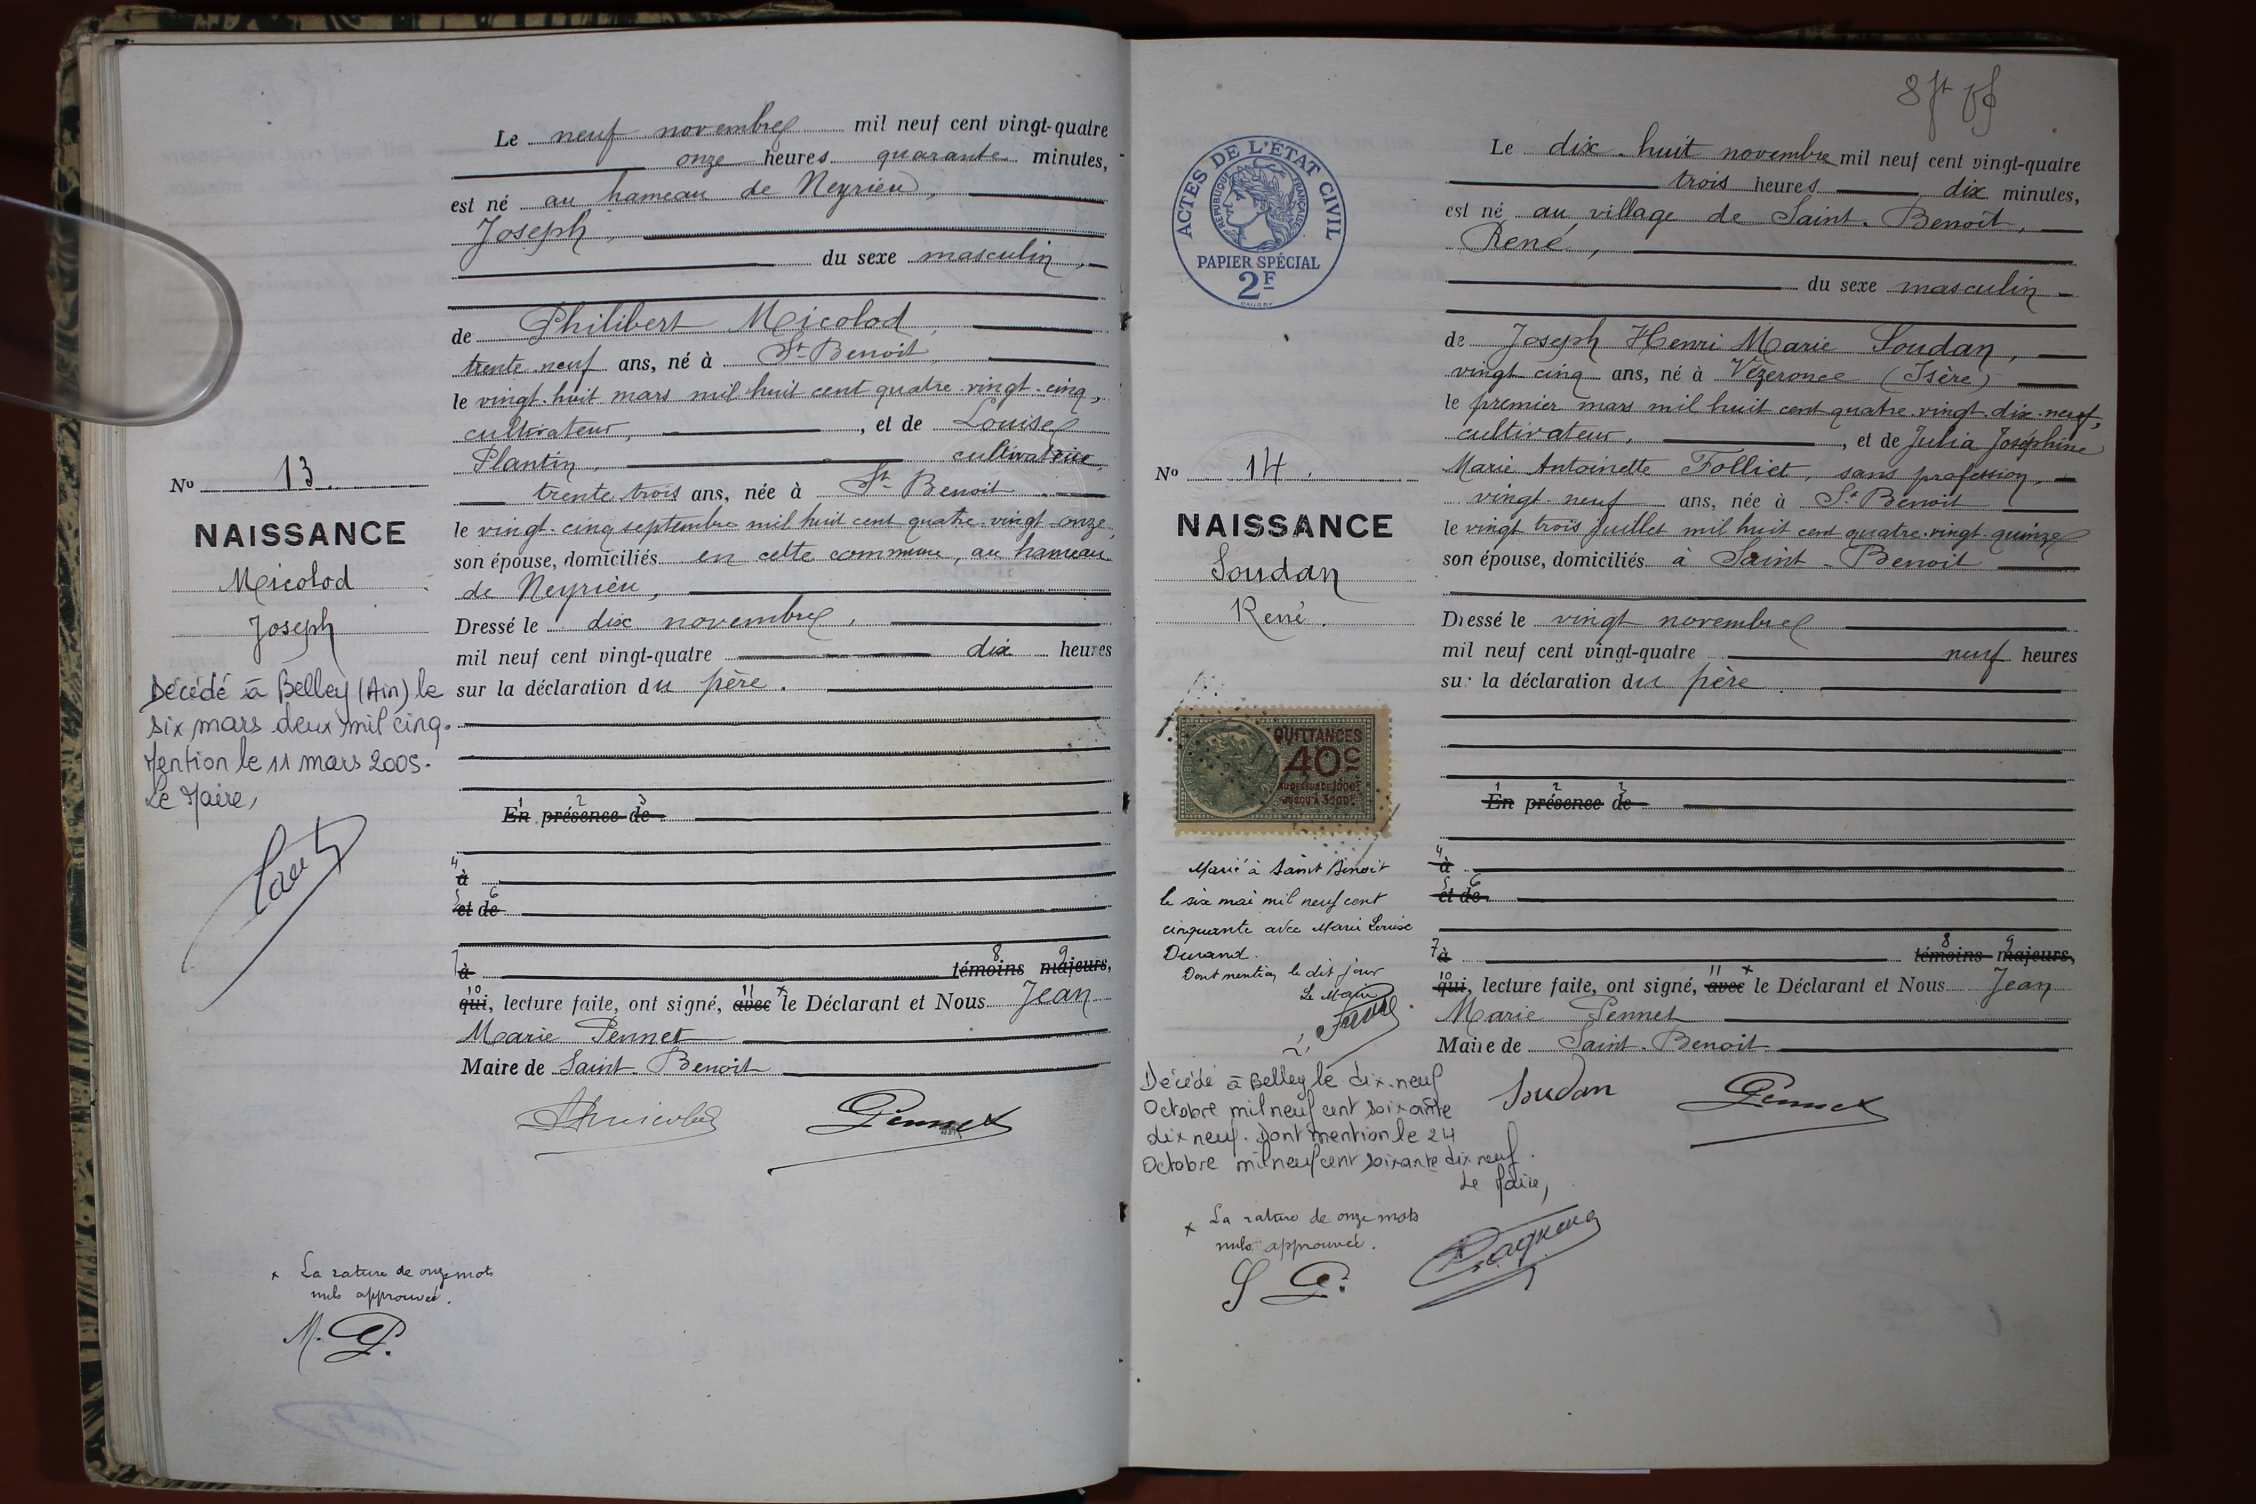 Le neuf novembre mil neuf cent vingt-quatre
onze heures quarante minutes,
est né au hameau de Neyrieu,
Joseph,
du sexe masculin,
de Philibert Micolod,
trente-neuf ans, né à St Benoit,
le vingt-huit mars mil huit cent quatre-vingt-cinq,
cultivateur, , et de Louise
Plantin, cultivatrice,
trente trois ans, née à St Benoit
le vingt-cinq septembre mil huit cent quatre-vingt-onze,
son épouse, domiciliés en cette commune, au hameau
de Neyrieu,
Dressé le dix novembre,
mil neuf cent vingt-quatre dix heures
sur la déclaration du père.
1 2 3
En présence de
4
à
5 6
et de
7 8 9
à témoins majeurs,
10 11 x
qui, lecture faite, ont signé, avec le Déclarant et Nous Jean
Marie Pennet
Maire de Saint-Benoit
Pennet
No 13.
NAISSANCE
Micolod
Joseph
Décédé à Belley (Ain) le
six mars deux mil cinq.
Mention le 11 mars 2005.
Le Maire,
x La rature de onze mots
nuls approuvée.
M. P.
8 ft
ACTES DE L'ETAT CIVIL
REPUBLIQUE FRANÇAISE
PAPIER SPÉCIAL
2F
Le dix-huit novembre mil neuf cent vingt-quatre
trois heures dix minutes,
est né au village de Saint-Benoît,
René,
du sexe masculin
de Joseph Henri Marie Soudan,
vingt cinq ans, né à Vézeronce (Isère)
le premier mars mil huit cent quatre-vingt-dix-neuf,
cultivateur, , et de Julia Joséphine
Marie Antoinette Folliet, sans profession,
vingt-neuf ans, née à St Benoit
le vingt trois juillet mil huit cent quatre-vingt-quinze
son épouse, domiciliés à Saint-Benoit
Dressé le vingt novembre
mil neuf cent vingt-quatre neuf heures
sur la déclaration du père.
1 2 3
En présence de
4
à
5 6
et de
7 8 9
à témoins majeurs,
10 11 x
qui, lecture faite, ont signé, avec le Déclarant et Nous Jean
Marie Pennet
Maire de Saint-Benoit
Soudan Pennet
No 14.
NAISSANCE
Soudan
René.
QUITTANCES
40c
AU DESSUS DE 1000F
JUSQU'A 3000F
Marié à Saint Benoit
le six mai mil neuf cent
cinquante avec Marie Louise
Durand.
Dont mention le dit jour
Le Maire
Décédé à Belley le dix-neuf
Octobre mil neuf cent soixante
dix neuf. Dont mention le 24
Octobre mil neuf cent soixante dix neuf.
Le Maire,
x La rature de onze mots
nuls approuvée.
S P.